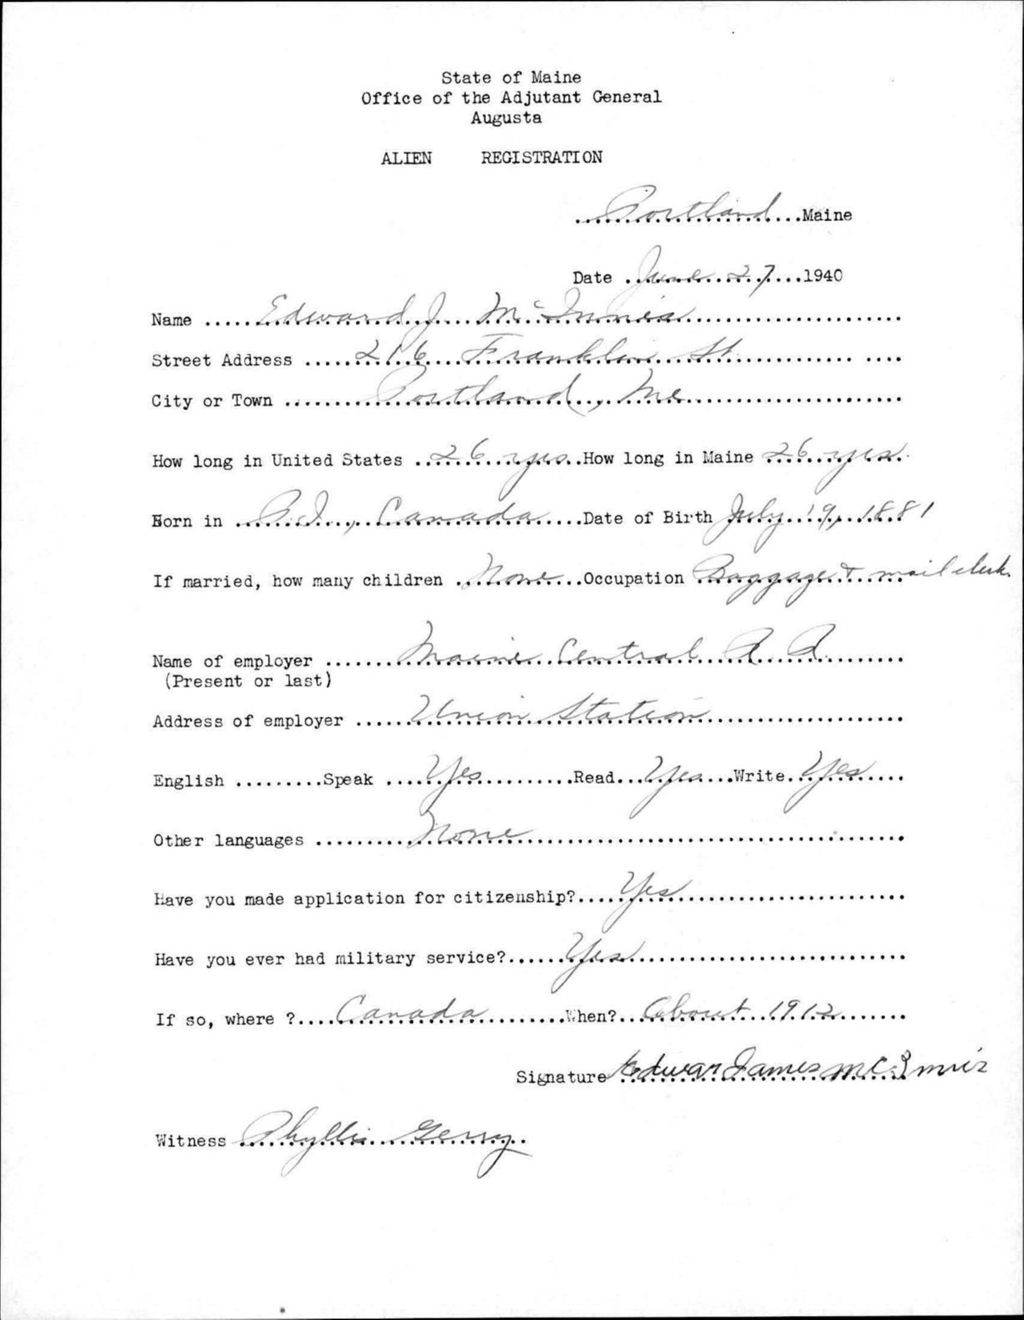 State of Maine
Office of the Adjutant General
Augusta
ALIEN REGISTRATION
Portland Maine
Date June 27 1940
Name Edward J. McInnis
Street Address 216 Franklin St.
City or Town Portland, Me
How long in United States 26 yrs. How long in Maine 26 yrs.
Born in P.I., Canada Date of Birth July 19, 1881
If married, how many children None Occupation Baggage & mail clerk
Name of employer Maine Central R. R.
(Present or last)
Address of employer Union Station
English Speak Yes Read Yes Write Yes
Other languages None
Have you made application for citizenship? Yes
Have you ever had military service? Yes
If so, where ? Canada When? About 1912
Signature Edwar James McInnis
Witness Phyllis Gerry